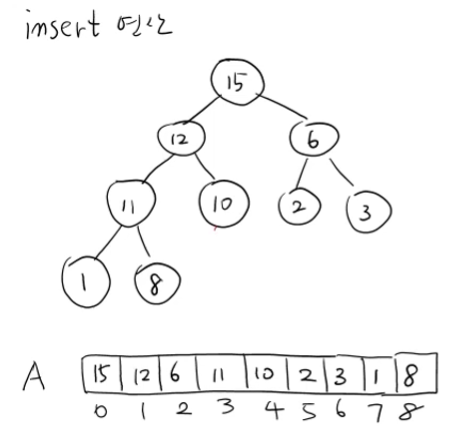 insert 연산
15
12 6
11 10 2 3
1 8
A 15 12 6 11 10 2 3 1 8
0 1 2 3 4 5 6 7 8